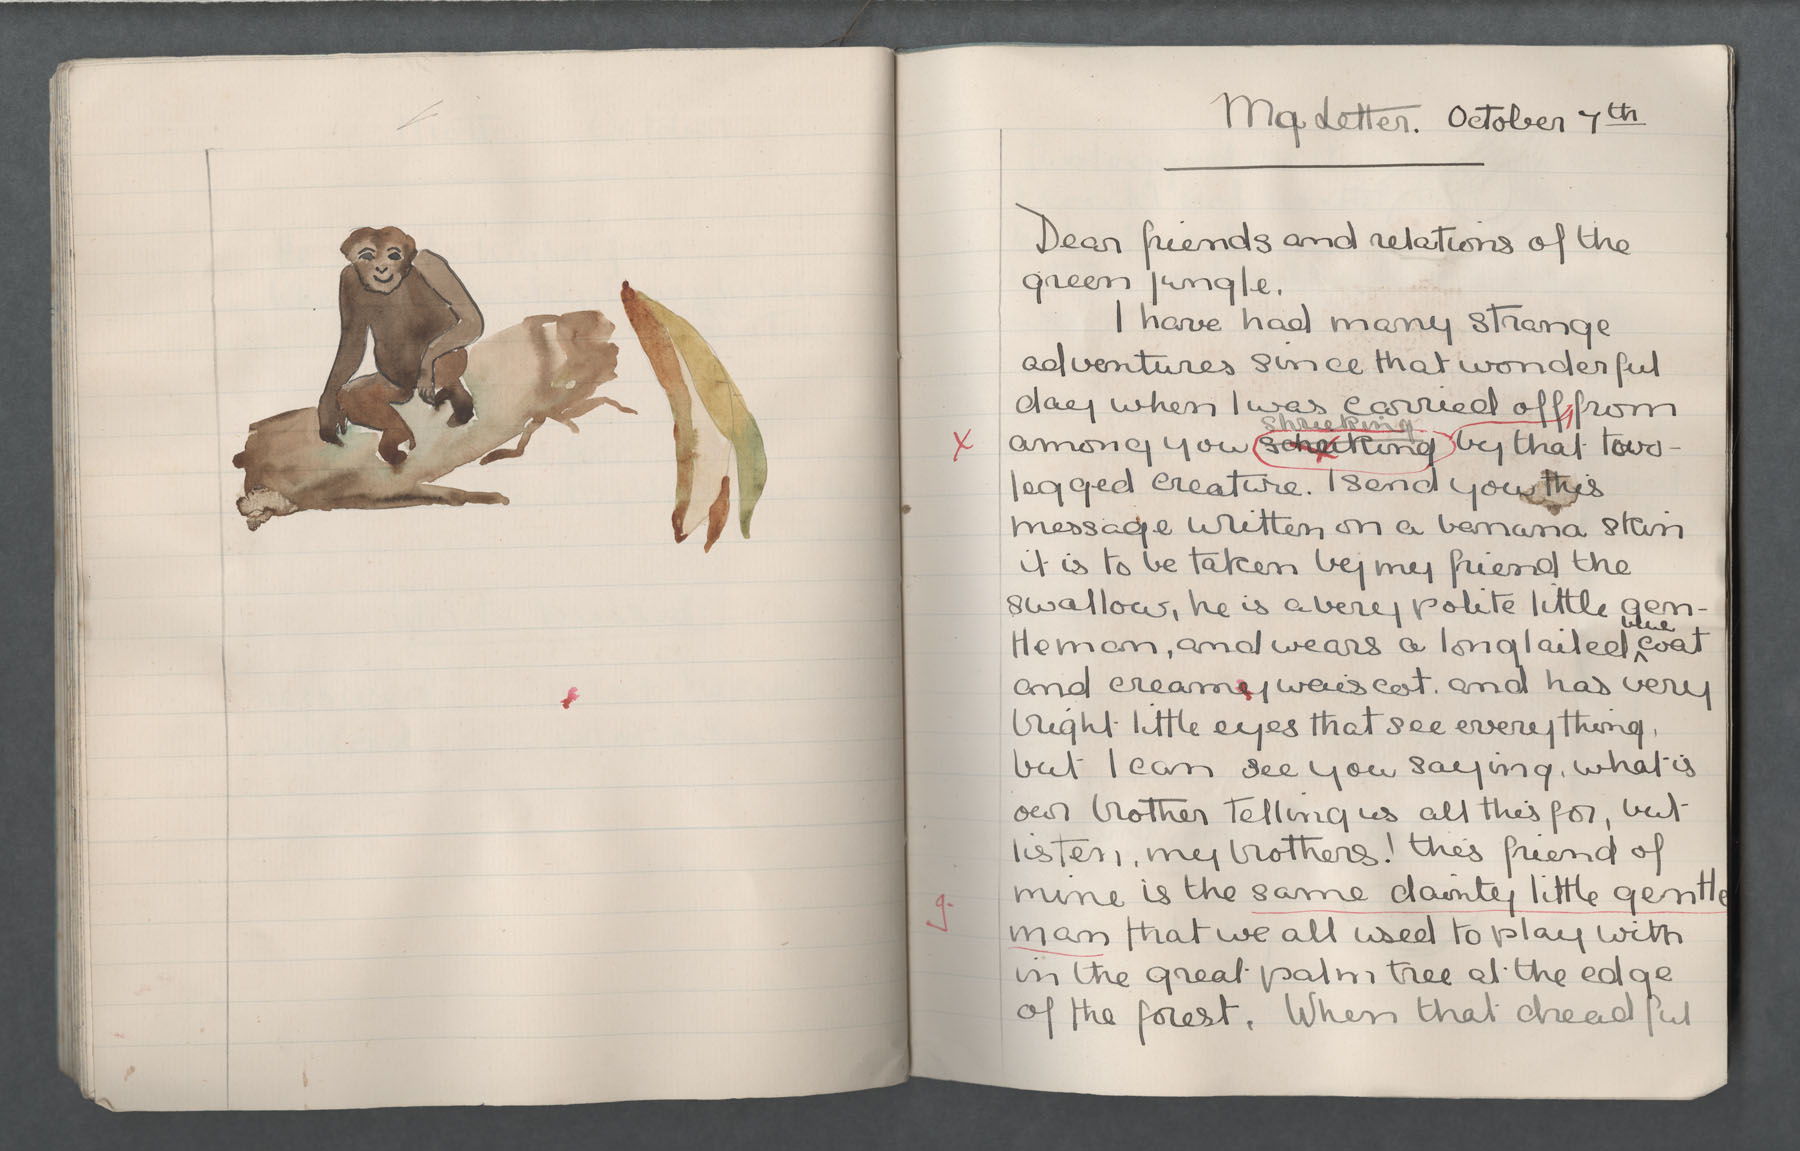 My Letter. October 7th
Dear friends and relations of the
green jungle.
I have had many strange
adventures since that wonderful
day when I was carried off, from
shrieking
x among you schrieking by that two-
legged creature. I send you this
message written on a banana skin
it is to be taken by my friend the
swallow, he is a very polite little gen-
blue
tleman, and wears a longtailed ^ coat
and creamy waiscot. and has very
bright little eyes that see everything,
but I can see you saying, what is
our brother telling us all this for, but
listen, my brothers! this friend of
g. mine is the same dainty little gentle
man that we all used to play with
in the great palm tree at the edge
of the forest. When that dreadful